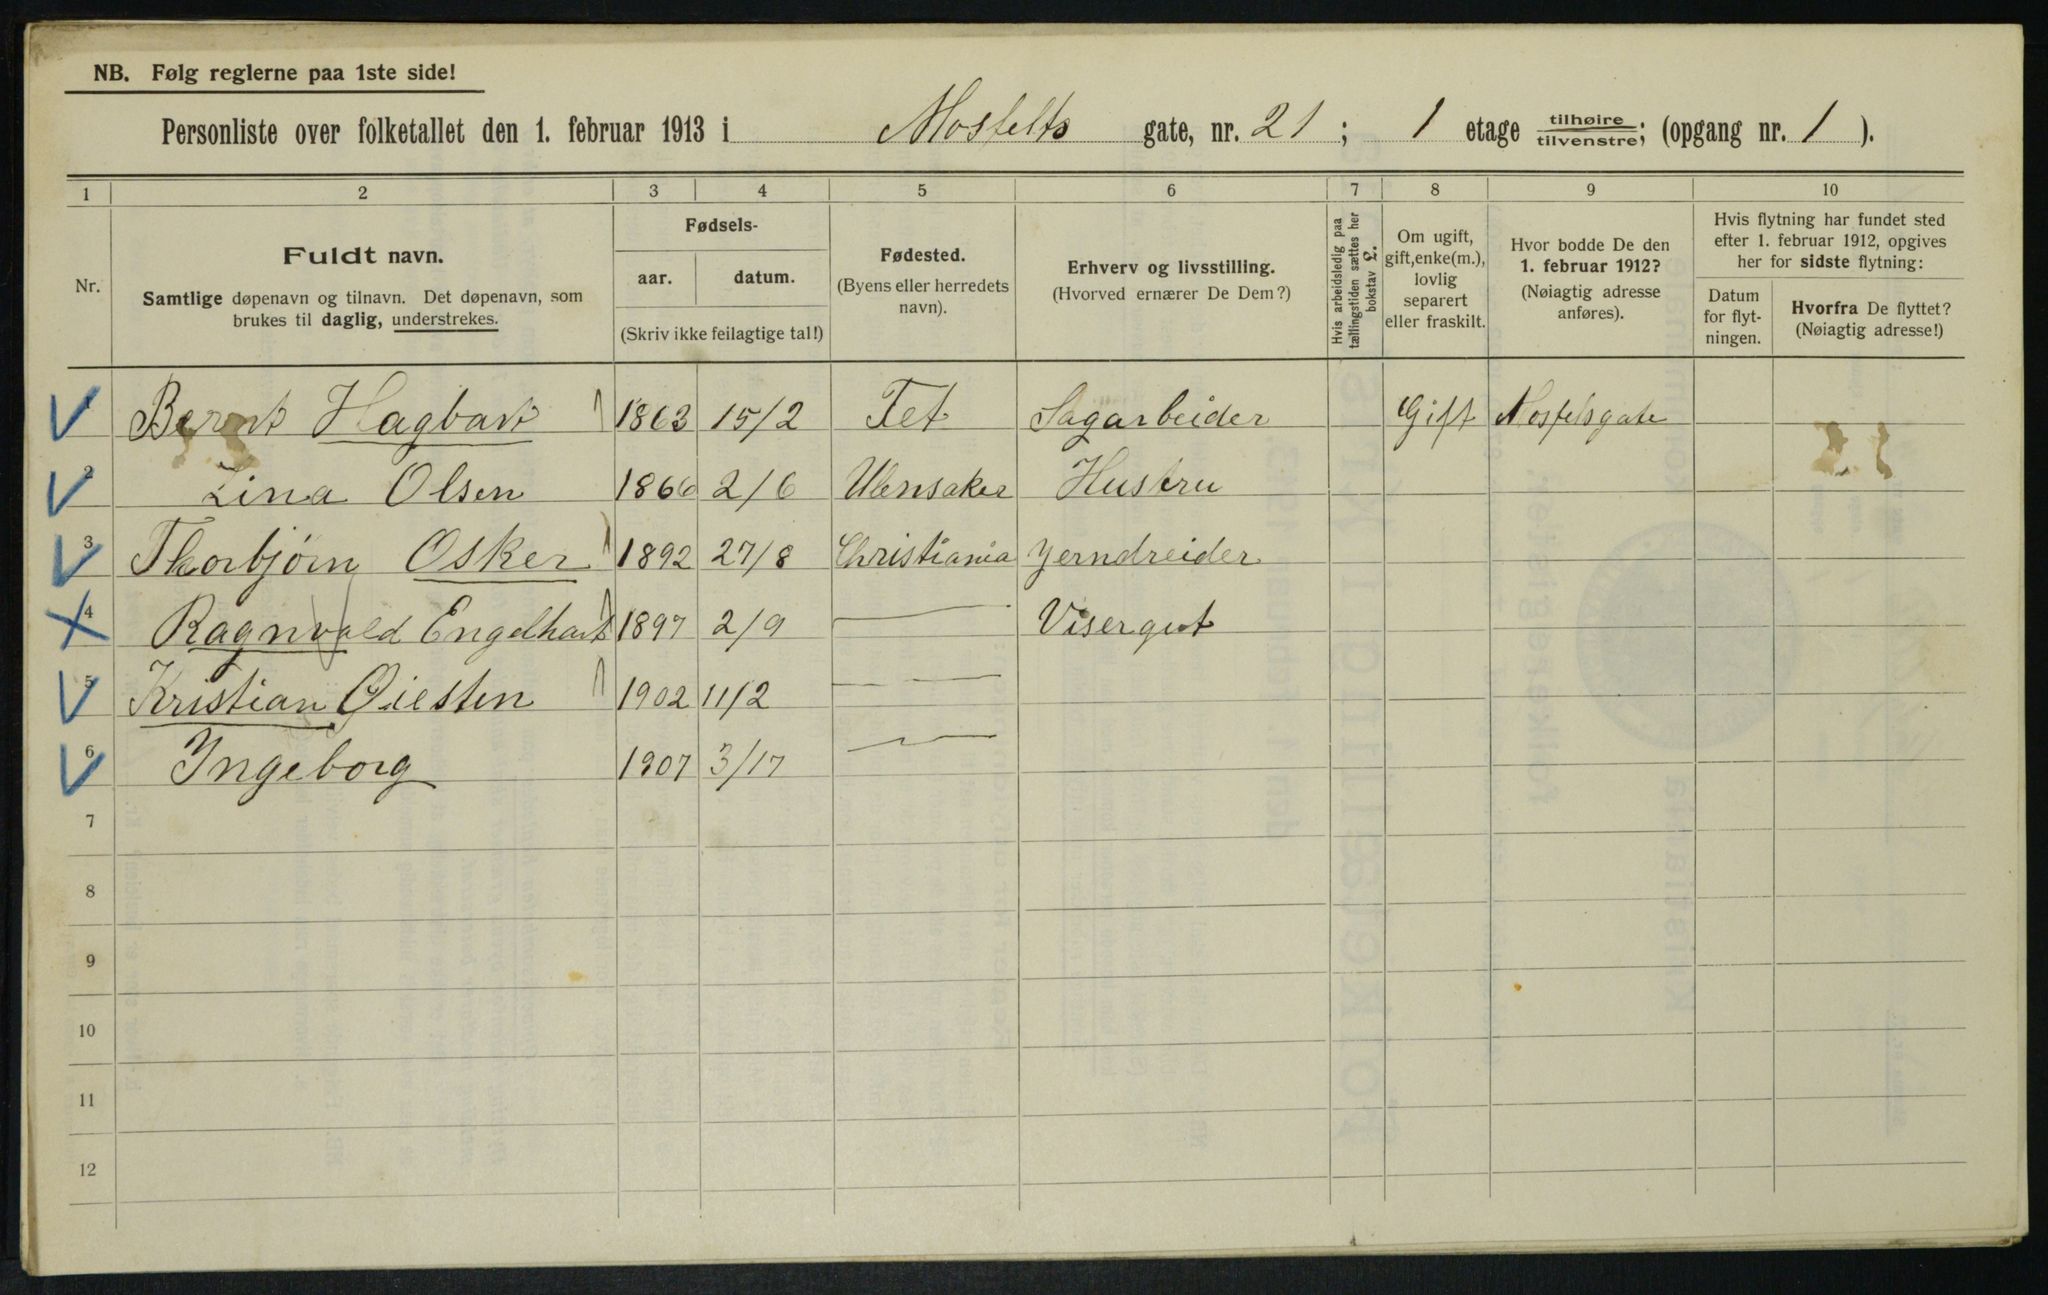 NB. Følg reglerne paa 1ste side!
Personliste over folketallet den 1. februar 1913 i Mosfelts gate, nr. 21 ; 1 etage tilhøire/tilvenstre; (opgang nr. 1 ).
1 2 3 4 5 6 7 8 9 10
Nr.
Fuldt navn.
Samtlige døpenavn og tilnavn. Det døpenavn, som
brukes til daglig, understrekes.
Fødsels-
aar. datum.
(Skriv ikke feilagtige tal!)
Fødested.
(Byens eller herredets
navn).
Erhverv og livsstilling.
(Hvorved ernærer De Dem?)
Hvis arbeidsledig paa
tællingstiden sættes her
bokstav L.
Om ugift,
gift, enke(m.),
lovlig
separert
eller fraskilt.
Hvor bodde De den
1. februar 1912?
(Nøiagtig adresse
anføres).
Hvis flytning har fundet sted
efter 1. februar 1912, opgives
her for sidste flytning:
Datum
for flyt-
ningen.
Hvorfra De flyttet?
(Nøiagtig adresse!)
1 Bernt Hagbart 1863 15/2 Fet Sagarbeider Gift Mosfelsgate
2 Lina Olsen 1866 2/6 Ulensaker Hustru
3 Thorbjørn Osker 1892 27/8 Christiania Jerndreider
4 Ragnvald Engelhart 1897 2/9 — Visergut
5 Kristian Øiesten 1902 11/2 — —
6 Ingeborg 1907 3/17 —
7
8
9
10
11
12